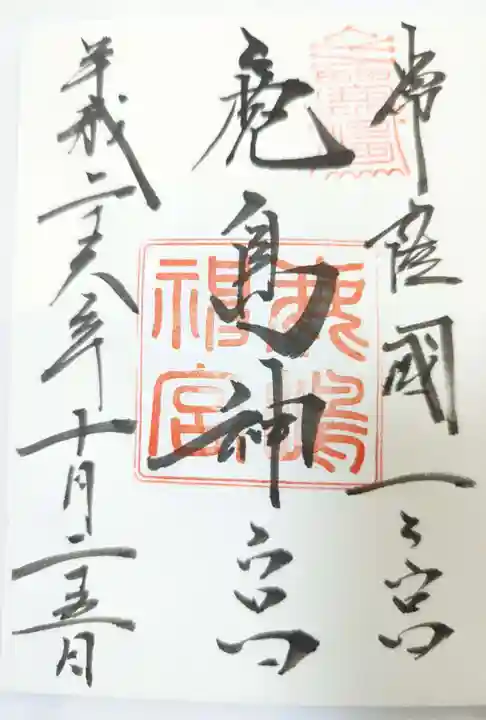 常陸國一之宮
鹿島神宮
鹿嶋
神宮
平成二十六年十月二十五日